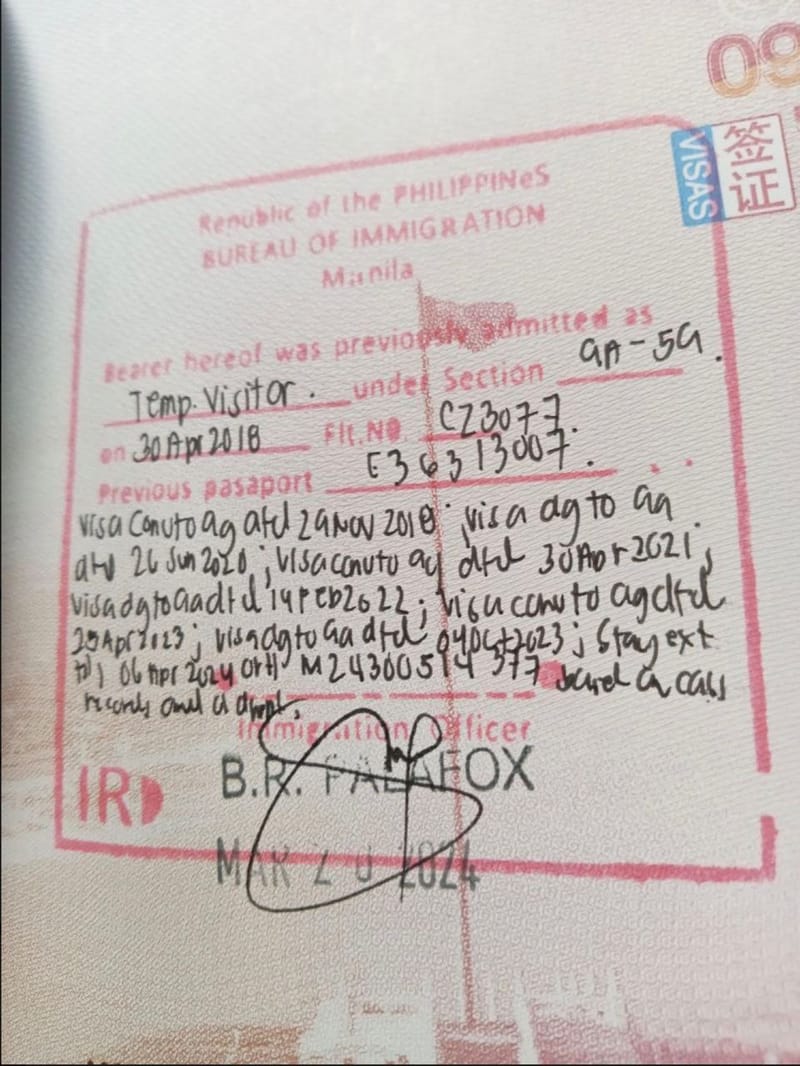 09
VISAS 签证
Republic of the PHILIPPINeS
BUREAU OF IMMIGRATION
Manila
Bearer hereof was previously admitted as
Temp. Visitor. under Section 9A-59.
on 30 Apr 2018 Flt.NO. CZ3077.
Previous pasaport E36313007.
visa conv to 9g dtd 29 NOV 2018; visa dg to 9a
dtd 26 Jun 2020; visa conv to 9g dtd 30 Apr 2021;
visa dg to 9a dtd 14 Feb 2022; visa conv to 9g dtd
Apr 2023; visa dg to 9a dtd 04 Oct 2023; Stay ext
06 Apr 2024 M24300514377 on
records and
Immigration Officer
B.R. PALAFOX
IRD
MAR 20 2024